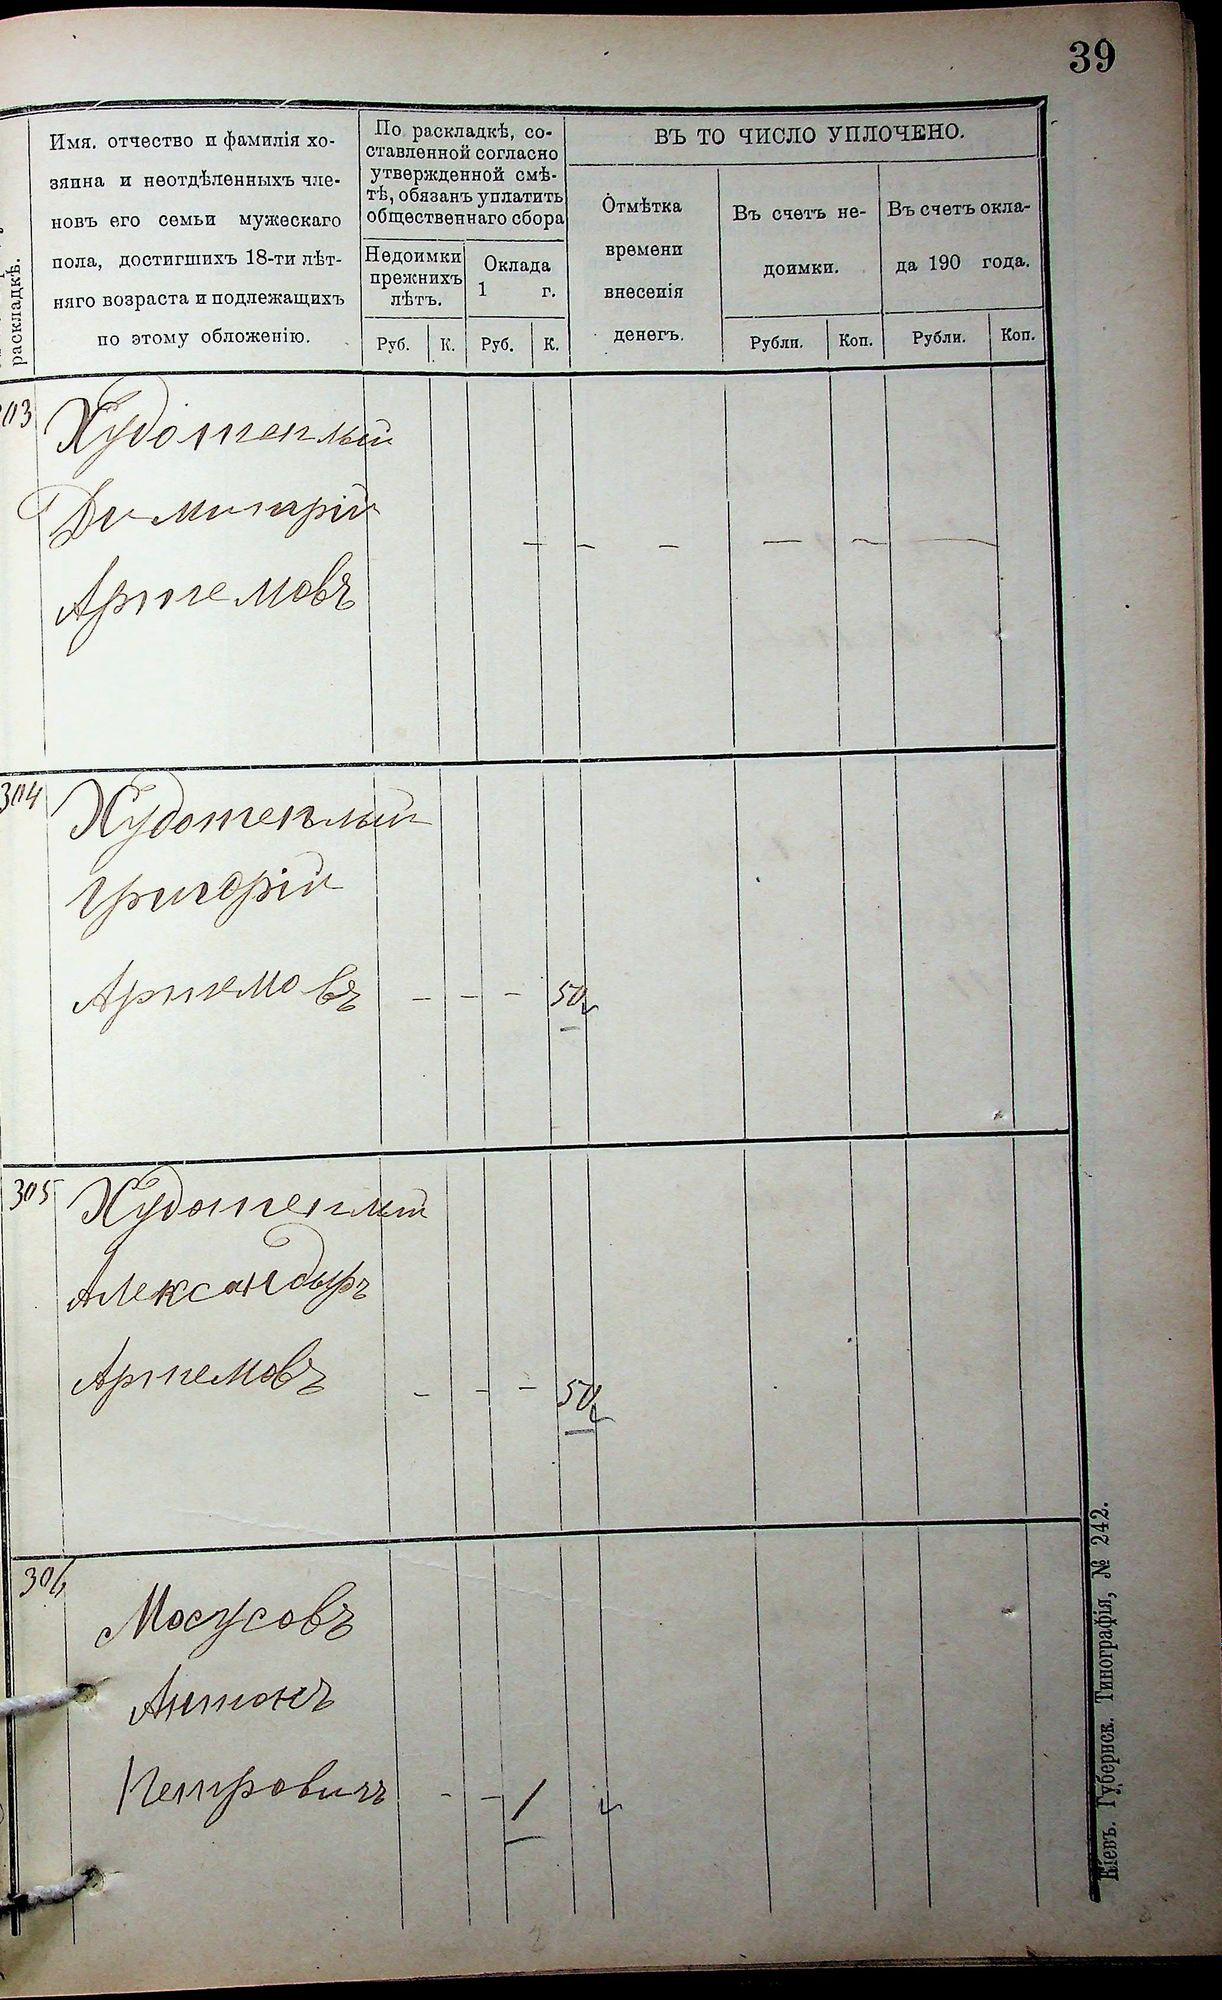 39
раскладкѣ.
Имя, отчество и фамилія хо-
зяина и неотдѣленныхъ чле-
новъ его семьи мужескаго
пола, достигшихъ 18-ти лѣт-
няго возраста и подлежащихъ
по этому обложенію.
По раскладкѣ, со-
ставленной согласно
утвержденной смѣ-
тѣ, обязанъ уплатить
общественнаго сбора
Недоимки
прежнихъ
лѣтъ.
Оклада
1 г.
Руб. К. Руб. К.
ВЪ ТО ЧИСЛО УПЛОЧЕНО.
Отмѣтка
времени
внесенія
денегъ.
Въ счетъ не-
доимки.
Въ счетъ окла-
да 190 года.
Рубли. Коп. Рубли. Коп.
303 Худотеплый
Димитрій
Артемовъ
304 Худотеплый
Григорій
Артемовъ - - - 50
305 Худотеплый
Александъръ
Артемовъ - - - 50
306
Мосусовъ
Антонъ
Петровичъ - - 1
Кіевъ. Губернск. Типографія, № 242.